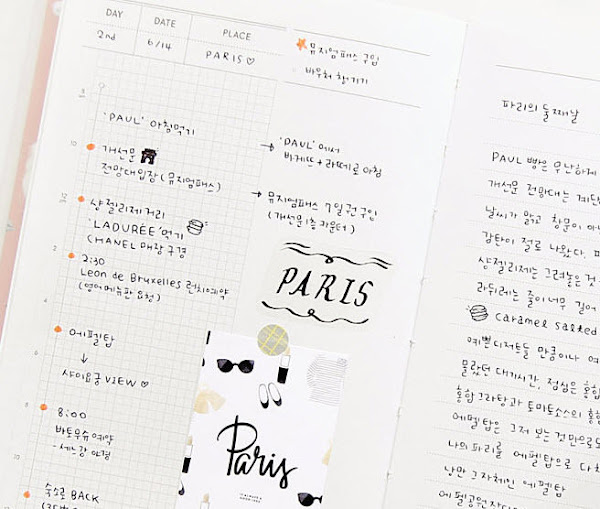 DAY
DATE
PLACE
2nd
6/14
PARIS♡
뮤지엄패스 구입
바우처 챙기기
8
'PAUL' 아침먹기
→ 'PAUL'에서
바게뜨+라떼로 아침
10
개선문
전망대입장(뮤지엄패스)
→ 뮤지엄패스 7일권 구입
(개선문 1층 카운터)
12
샹젤리제 거리
'LADURÉE' 먹기
CHANEL 매장 구경
2
2:30
Leon de Bruxelles 런치예약
(영어메뉴판 요청)
PARIS
4
에펠탑
↓
샤이요궁 VIEW♡
6
8
8:00
바토무슈 예약
-세느강 야경
10
숙소로 BACK
Paris
파리의 둘째날
PAUL 빵은 무난하게
개선문 전망대는 계단
날씨가 맑고 창문이 아
감탄이 절로 나왔다. 파
샹젤리제는 그려놓은 것
라뒤레는 줄이 너무 길어
caramel salted
예쁜 디저트들 만큼이나 여
몰랐던 대기시간, 점심은 홍합
홍합 그라탕과 토마토소스의 홍합
에펠탑은 그저 보는 것만으로도
나의 파리를 에펠탑으로 다 채
낭만 그 자체인 에펠탑
에펠공원